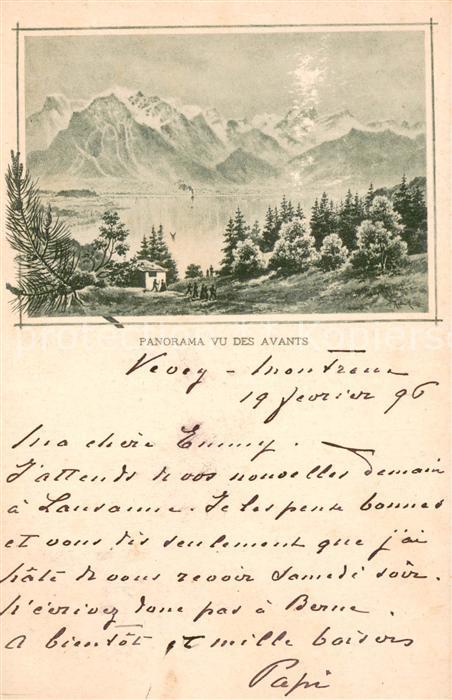 PANORAMA VU DES AVANTS
Vevey - Montreux
19 février 96
Ma chère Emmy.
J'attends de vos nouvelles demain
à Lausanne. Je les pense bonnes
et vous dis seulement que j'ai
hâte de vous revoir samedi soir.
N'écrivez donc pas à Berne.
A bientôt et mille baisers
Papi